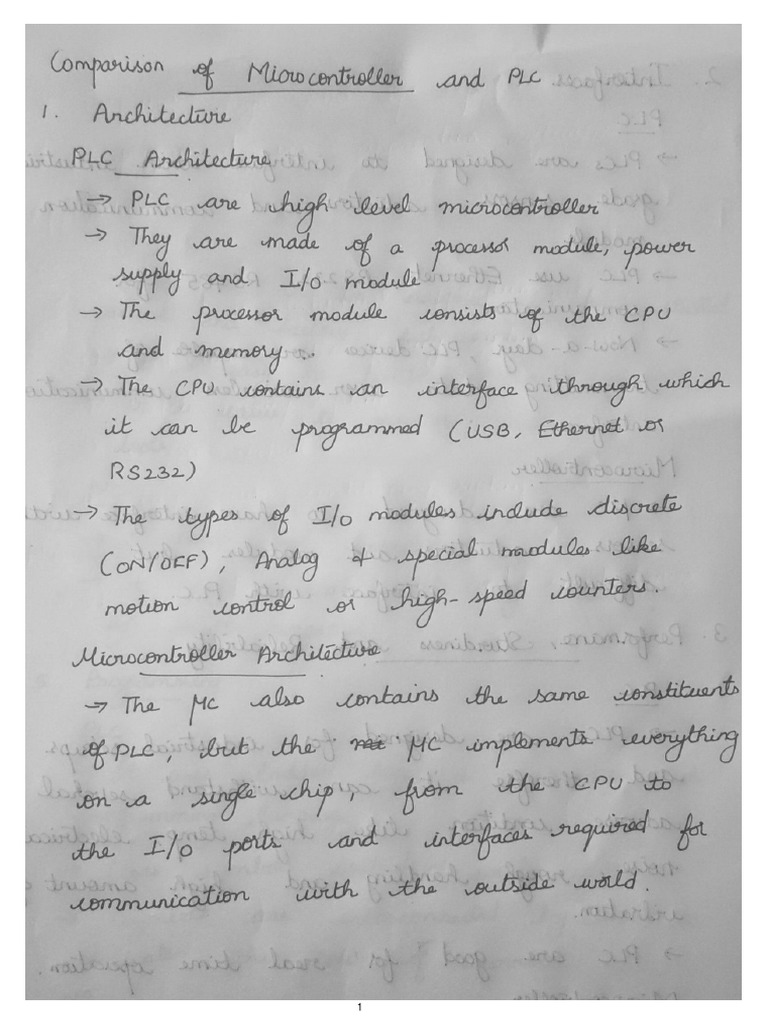 Comparison of Microcontroller and PLC
1. Architecture
PLC Architecture
→ PLC are high level microcontroller
→ They are made of a processor module, power
supply and I/O module
→ The processor module consists of the CPU
and memory.
→ The CPU contains an interface through which
it can be programmed (USB, Ethernet or
RS232)
→ The types of I/O modules include discrete
(ON/OFF), Analog & special modules like
motion control or high-speed counters.
Microcontroller Architecture
→ The μC also contains the same constituents
of PLC, but the μC implements everything
on a single chip, from the CPU to
the I/O ports and interfaces required for
communication with the outside world.
1